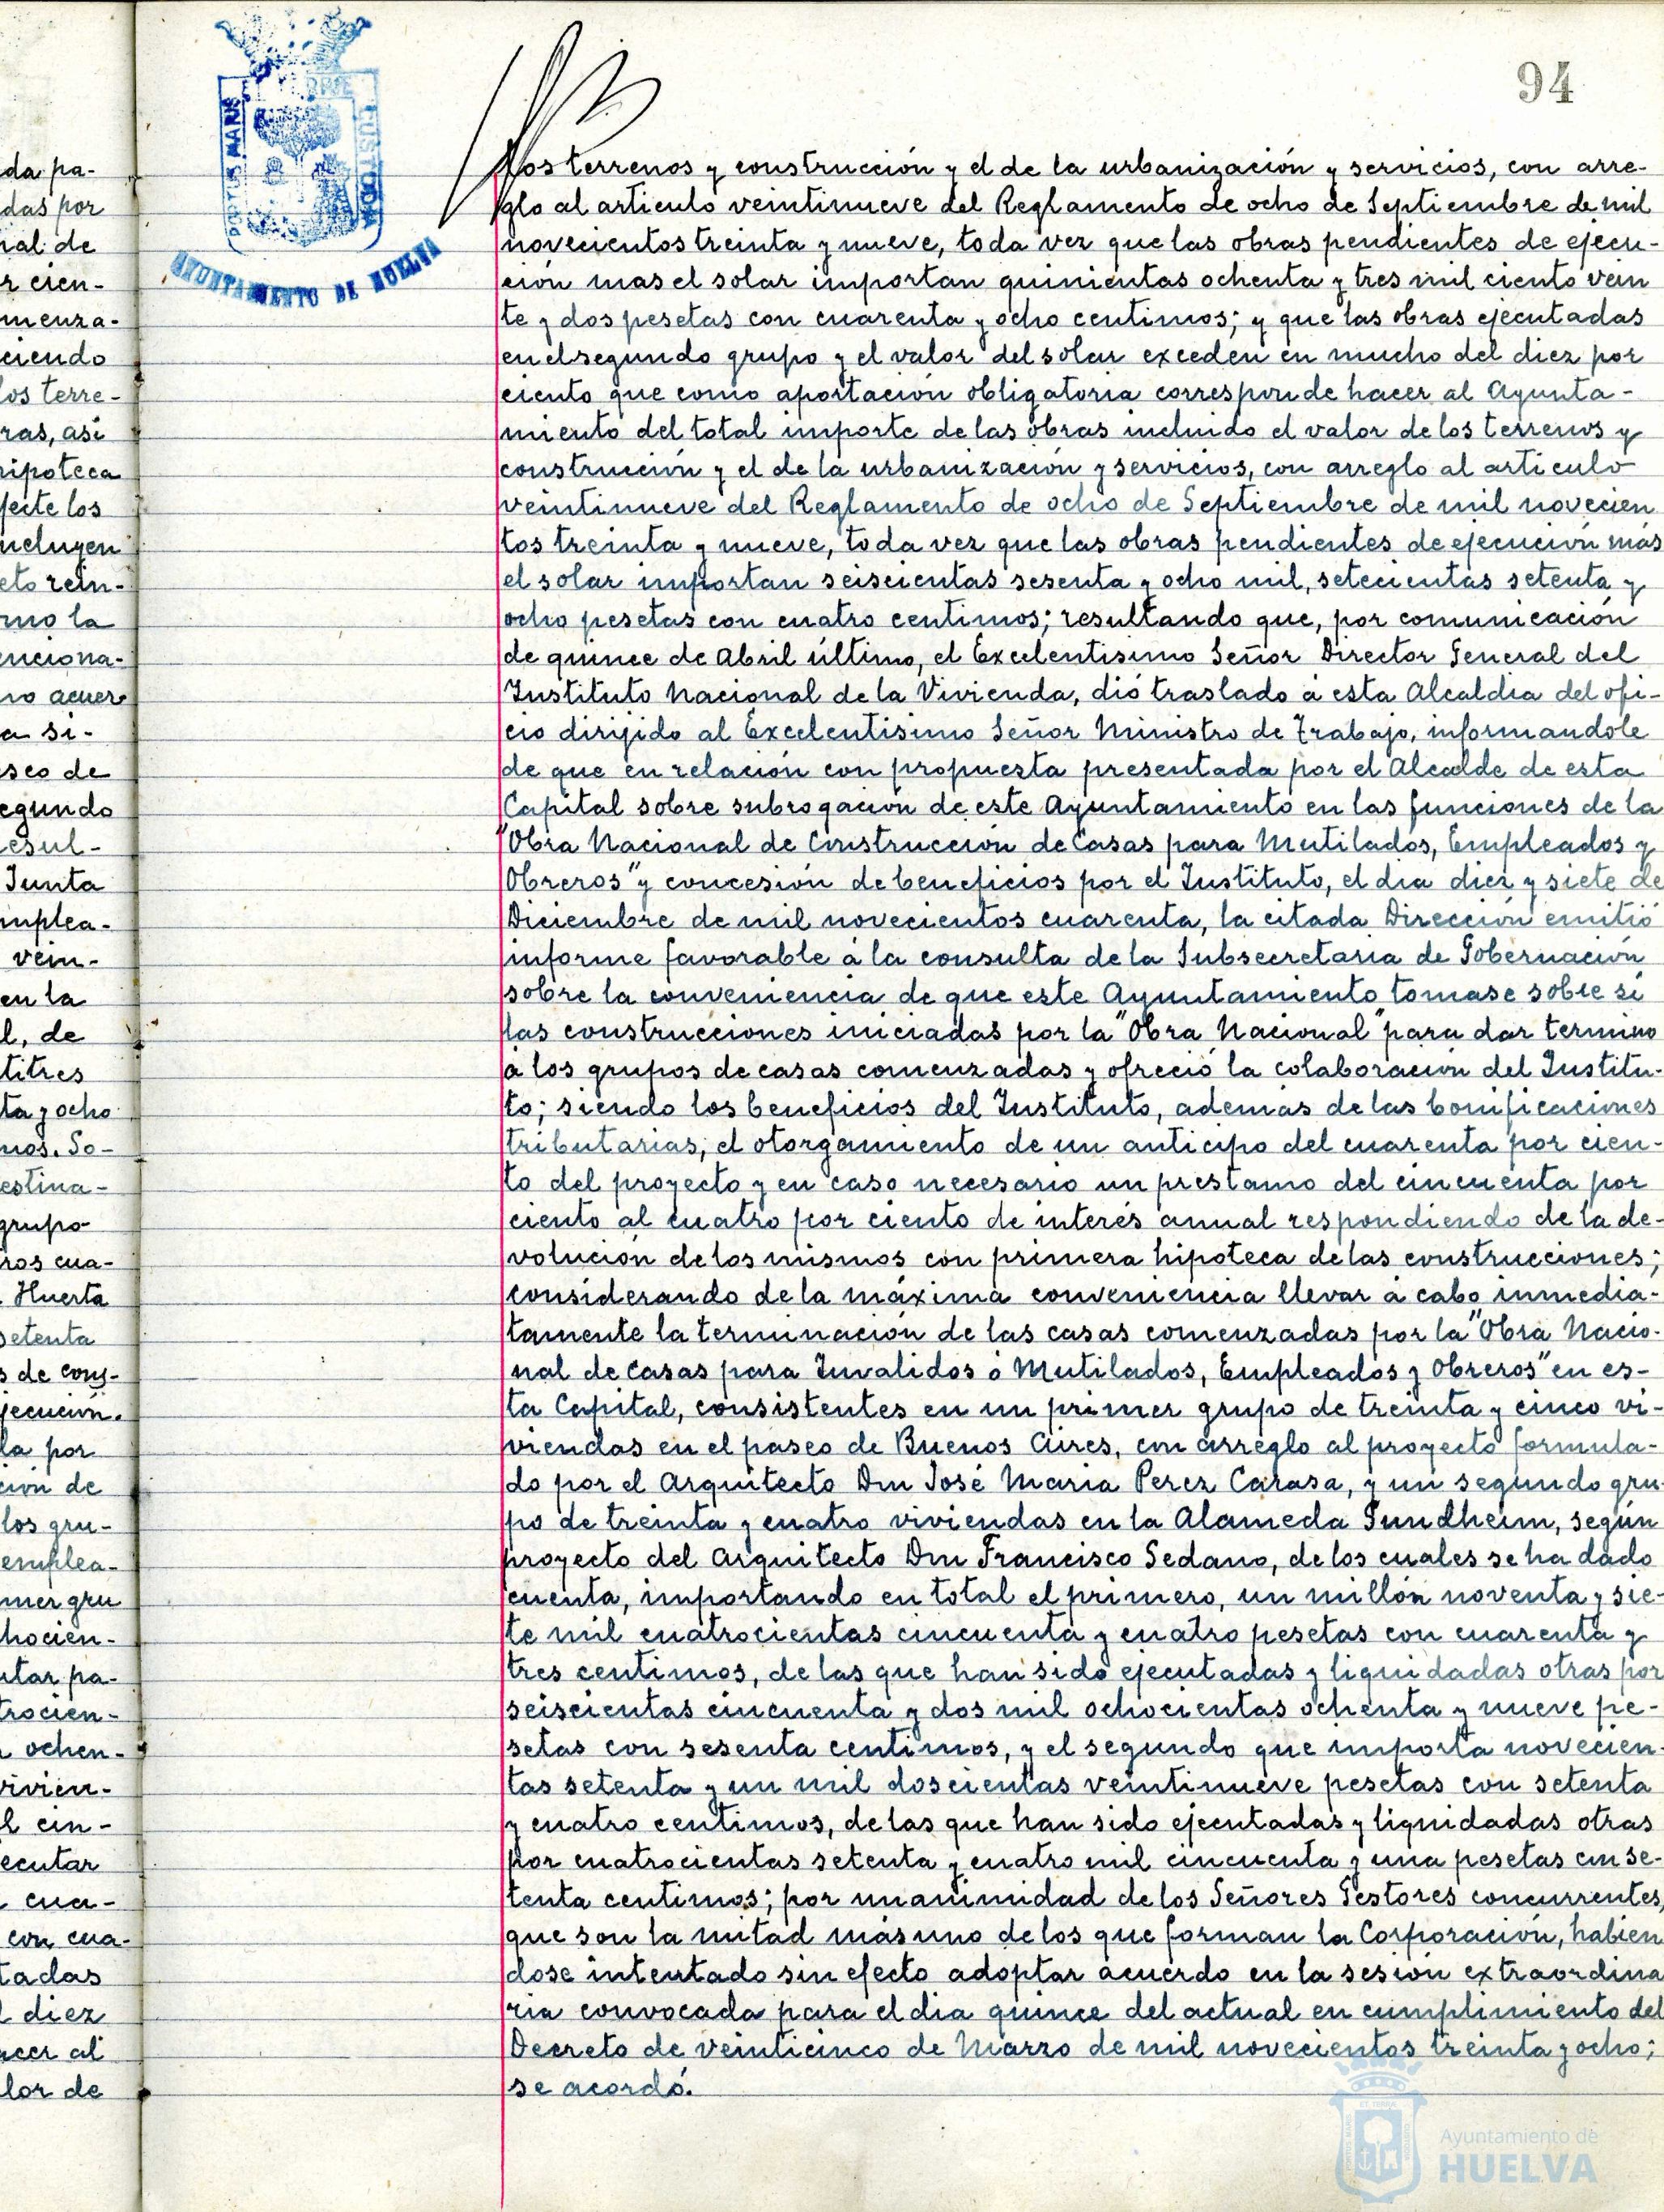 94
PORTUS MARIS
CUSTODIA
AYUNTAMIENTO DE HUELVA
los terrenos y construcción y el de la urbanización y servicios, con arre-
glo al articulo veintinueve del Reglamento de ocho de Septiembre de mil
novecientos treinta y nueve, toda vez que las obras pendientes de ejecu-
ción mas el solar importan quinientas ochenta y tres mil ciento vein
te y dos pesetas con cuarenta y ocho centimos; y que las obras ejecutadas
en el segundo grupo y el valor del solar exceden en mucho del diez por
ciento que como aportación obligatoria corresponde hacer al Ayunta-
miento del total importe de las obras incluido el valor de los terrenos y
construcción y el de la urbanización y servicios, con arreglo al articulo
veintinueve del Reglamento de ocho de Septiembre de mil novecien
tos treinta y nueve, toda vez que las obras pendientes de ejecución más
el solar importan seiscientas sesenta y ocho mil, setecientas setenta y
ocho pesetas con cuatro centimos; resultando que, por comunicación
de quince de Abril último, el Excelentisimo Señor Director General del
Instituto Nacional de la Vivienda, dió traslado á esta Alcaldia del ofi-
cio dirijido al Excelentisimo Señor Ministro de Trabajo, informandole
de que en relación con propuesta presentada por el Alcalde de esta
Capital sobre subrogación de este Ayuntamiento en las funciones de la
"Obra Nacional de Construcción de Casas para Mutilados, Empleados y
Obreros" y concesión de beneficios por el Instituto, el dia diez y siete de
Diciembre de mil novecientos cuarenta, la citada Dirección emitió
informe favorable á la consulta de la Subsecretaria de Gobernación
sobre la conveniencia de que este Ayuntamiento tomase sobre si
las construcciones iniciadas por la "Obra Nacional" para dar termino
á los grupos de casas comenzadas y ofreció la colaboración del Institu-
to; siendo los beneficios del Instituto, ademas de las bonificaciones
tributarias, el otorgamiento de un anticipo del cuarenta por cien-
to del proyecto y en caso necesario un prestamo del cincuenta por
ciento al cuatro por ciento de interés anual respondiendo de la de-
volución de los mismos con primera hipoteca de las construcciones;
considerando de la máxima conveniencia llevar á cabo inmedia-
tamente la terminación de las casas comenzadas por la "Obra Nacio-
nal de Casas para Invalidos ó Mutilados, Empleados y Obreros" en es-
ta Capital, consistentes en un primer grupo de treinta y cinco vi-
viendas en el paseo de Buenos Aires, con arreglo al proyecto formula-
do por el Arquitecto Don José Maria Perez Carasa, y un segundo gru-
po de treinta y cuatro viviendas en la Alameda Sundheim, según
proyecto del Arquitecto Don Francisco Sedano, de los cuales se ha dado
cuenta, importando en total el primero, un millón noventa y sie-
te mil cuatrocientas cincuenta y cuatro pesetas con cuarenta y
tres centimos, de las que han sido ejecutadas y liquidadas otras por
seiscientas cincuenta y dos mil ochocientas ochenta y nueve pe-
setas con sesenta centimos, y el segundo que importa novecien-
tas setenta y un mil doscientas veintinueve pesetas con setenta
y cuatro centimos, de las que han sido ejecutadas y liquidadas otras
por cuatrocientas setenta y cuatro mil cincuenta y una pesetas con se-
tenta centimos; por unanimidad de los Señores Gestores concurrentes,
que son la mitad más uno de los que forman la Corporación, habien
dose intentado sin efecto adoptar acuerdo en la sesión extraordina
ria convocada para el dia quince del actual en cumplimiento del
Decreto de veinticinco de Marzo de mil novecientos treinta y ocho;
se acordó.
Ayuntamiento de
HUELVA